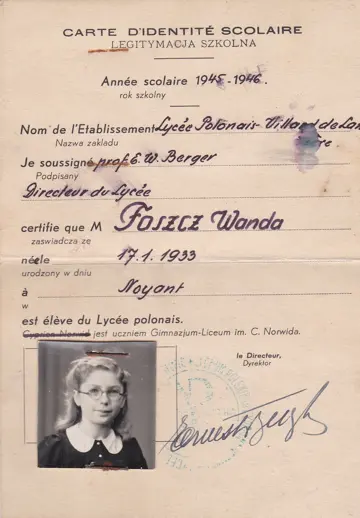 CARTE D'IDENTITÉ SCOLAIRE
LEGITYMACJA SZKOLNA
Année scolaire 1945-1946
rok szkolny
Nom de l'Etablissement Lycée Polonais-Villard de Lans
Nazwa zakladu Isère
Je soussigné prof. E. W. Berger
Podpisany
Directeur du Lycée
certifie que M FOSZCZ Wanda
zaświadcza że
née le 17.1.1933
urodzony w dniu
à Noyant
w
est élève du Lycée polonais.
Cyprien Norwid jest uczniem Gimnazjum-Liceum im. C. Norwida.
le Directeur,
Dyrektor